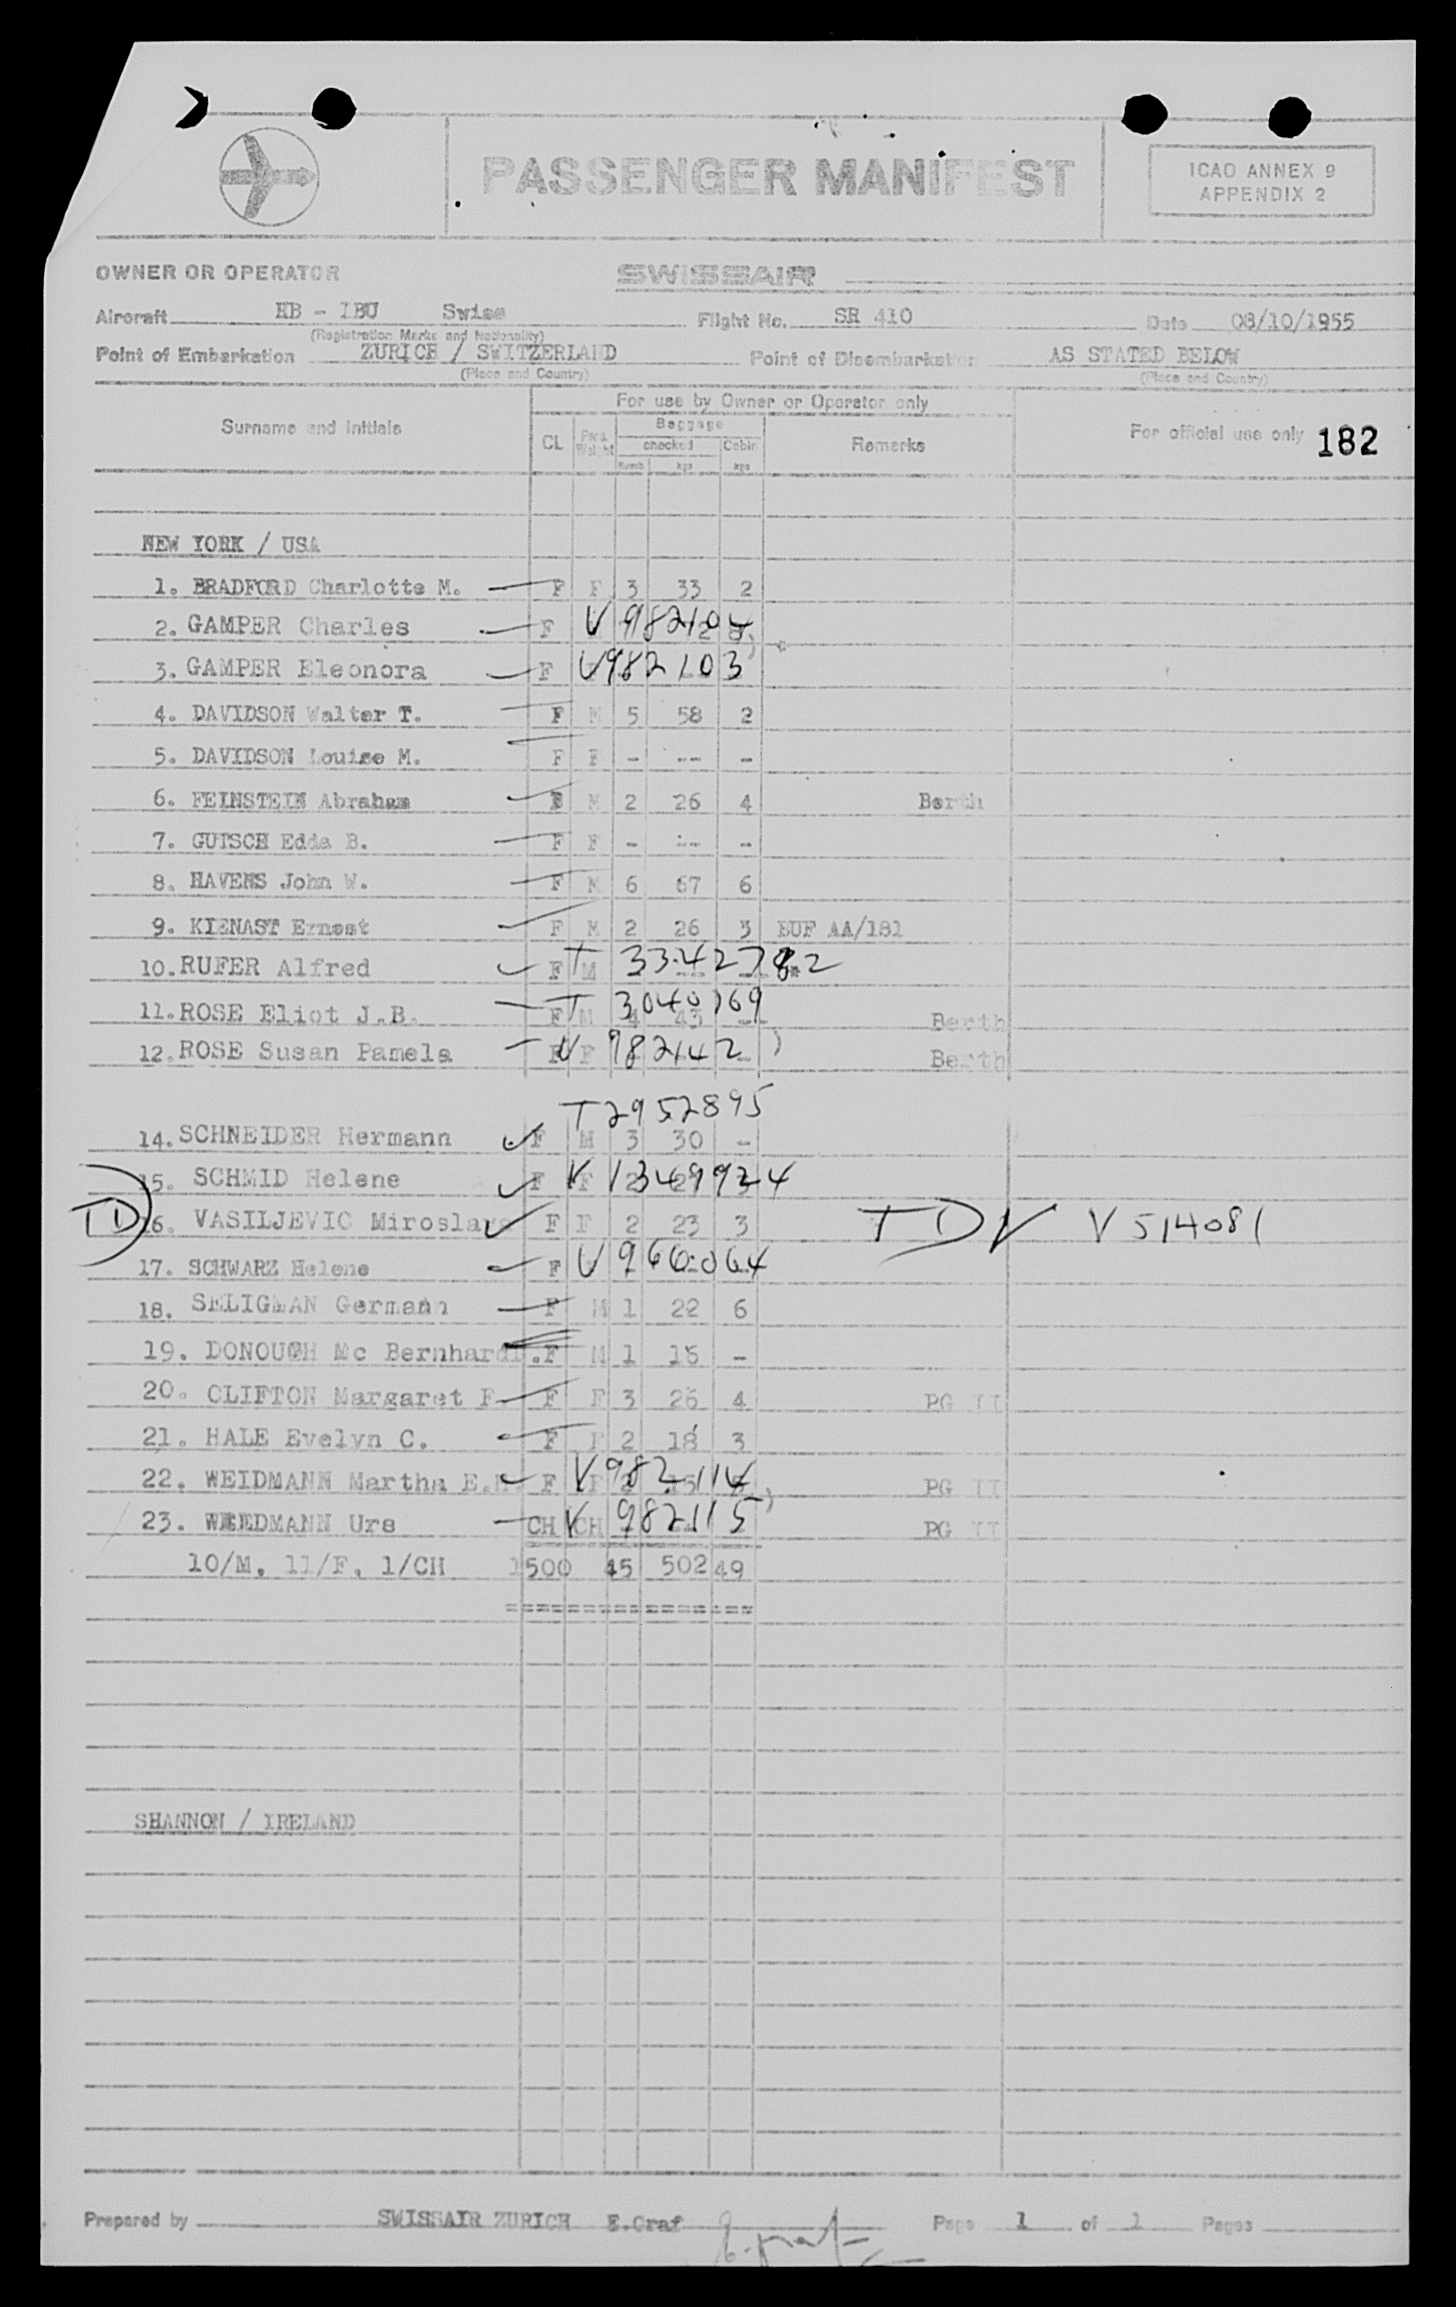 PASSENGER MANIFEST
ICAO ANNEX 9
APPENDIX 2
OWNER OR OPERATOR SWISSAIR
Aircraft HB - IBU Swiss Flight No. SR 410 Date 08/10/1955
(Registration Marks and Nationality)
Point of Embarkation ZURICH / SWITZERLAND Point of Disembarkation AS STATED BELOW
(Place and Country) (Place and Country)
For use by Owner or Operator only
Surname and initials CL Pass. Weight Baggage checked Numb kgs Cabin kgs Remarks For official use only 182
NEW YORK / USA
1. BRADFORD Charlotte M. F F 3 33 2
2. GAMPER Charles F V 982104
3. GAMPER Eleonora F V982103
4. DAVIDSON Walter T. F M 5 58 2
5. DAVIDSON Louise M. F F - -- -
6. FEINSTEIN Abraham F M 2 26 4 Berth
7. GUTSCH Edda B. F F - -- -
8. HAVENS John W. F M 6 67 6
9. KIENAST Ernest F M 2 26 3 EUF AA/181
10. RUFER Alfred F M T
11. ROSE Eliot J.B. F M 4 43 - T 3040169 Berth
12. ROSE Susan Pamela F F V 982142 Berth
T2952895
14. SCHNEIDER Hermann F M 3 30 -
15. SCHMID Helene F F V 1349924
TD 16. VASILJEVIC Miroslava F F 2 23 3 TD V V 514081
17. SCHWARZ Helene F V 966064
18. SELIGMAN Germann F M 1 22 6
19. DONOUGH Mc Bernhard F. F M 1 15 -
20. CLIFTON Margaret F F 3 26 4 PG II
21. HALE Evelyn C. F F 2 18 3
22. WEIDMANN Martha E. F F V982114 PG II
23. WEIDMANN Urs CH CH V 982115 PG II
10/M, 11/F, 1/CH 1500 45 502 49
SHANNON / IRELAND
Prepared by SWISSAIR ZURICH E.Graf E. Graf Page 1 of 1 Pages